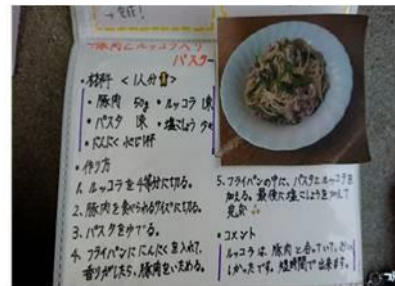 →完成！
豚肉とルッコラ入り
パスタ
・材料 <1人分>
・豚肉 50g ・ルッコラ
・パスタ ・塩こしょう 少々
・にんにく
・作り方
1. ルッコラを4等分に切る。
2. 豚肉を食べられるサイズに切る。
3. パスタをゆでる。
4. フライパンににんにくを入れて、
香りがしたら、豚肉をいためる。
5. フライパンの中に、パスタとルッコラを
加える。最後に塩こしょうを加えて
完成
・コメント
ルッコラは、豚肉と合っていて、おい
しかったです。短時間で出来ます。